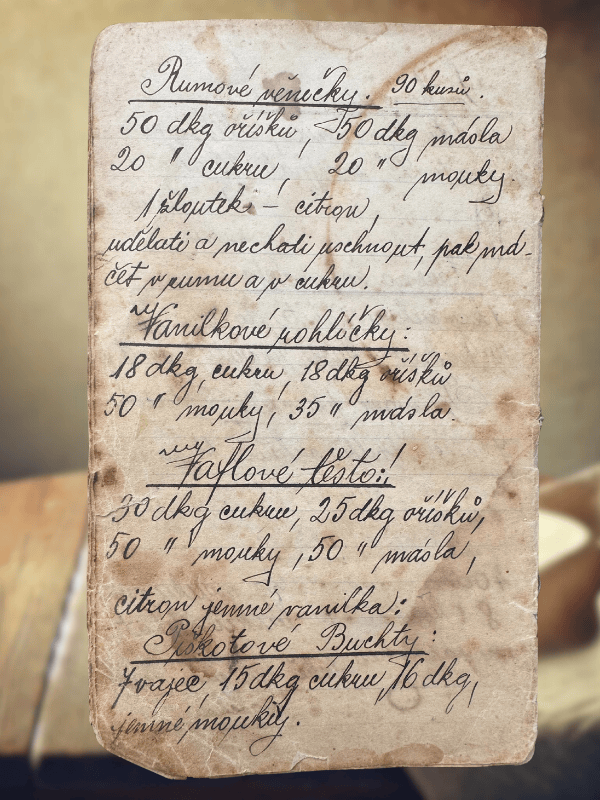 Rumové věnečky. 90 kusů.
50 dkg oříšků, 50 dkg másla
20 " cukru, 20 " mouky.
1 žloutek – citron,
udělati a nechati uschnout, pak má-
čet v rumu a v cukru.
Vanilkové rohlíčky:
18 dkg cukru, 18 dkg oříšků
50 " mouky, 35 " másla.
Vaflové těsto:
30 dkg cukru, 25 dkg oříšků,
50 " mouky, 50 " másla,
citron jemné vanilka:
Piškotové Buchty:
7 vajec, 15 dkg cukru, 16 dkg,
jemné mouky.